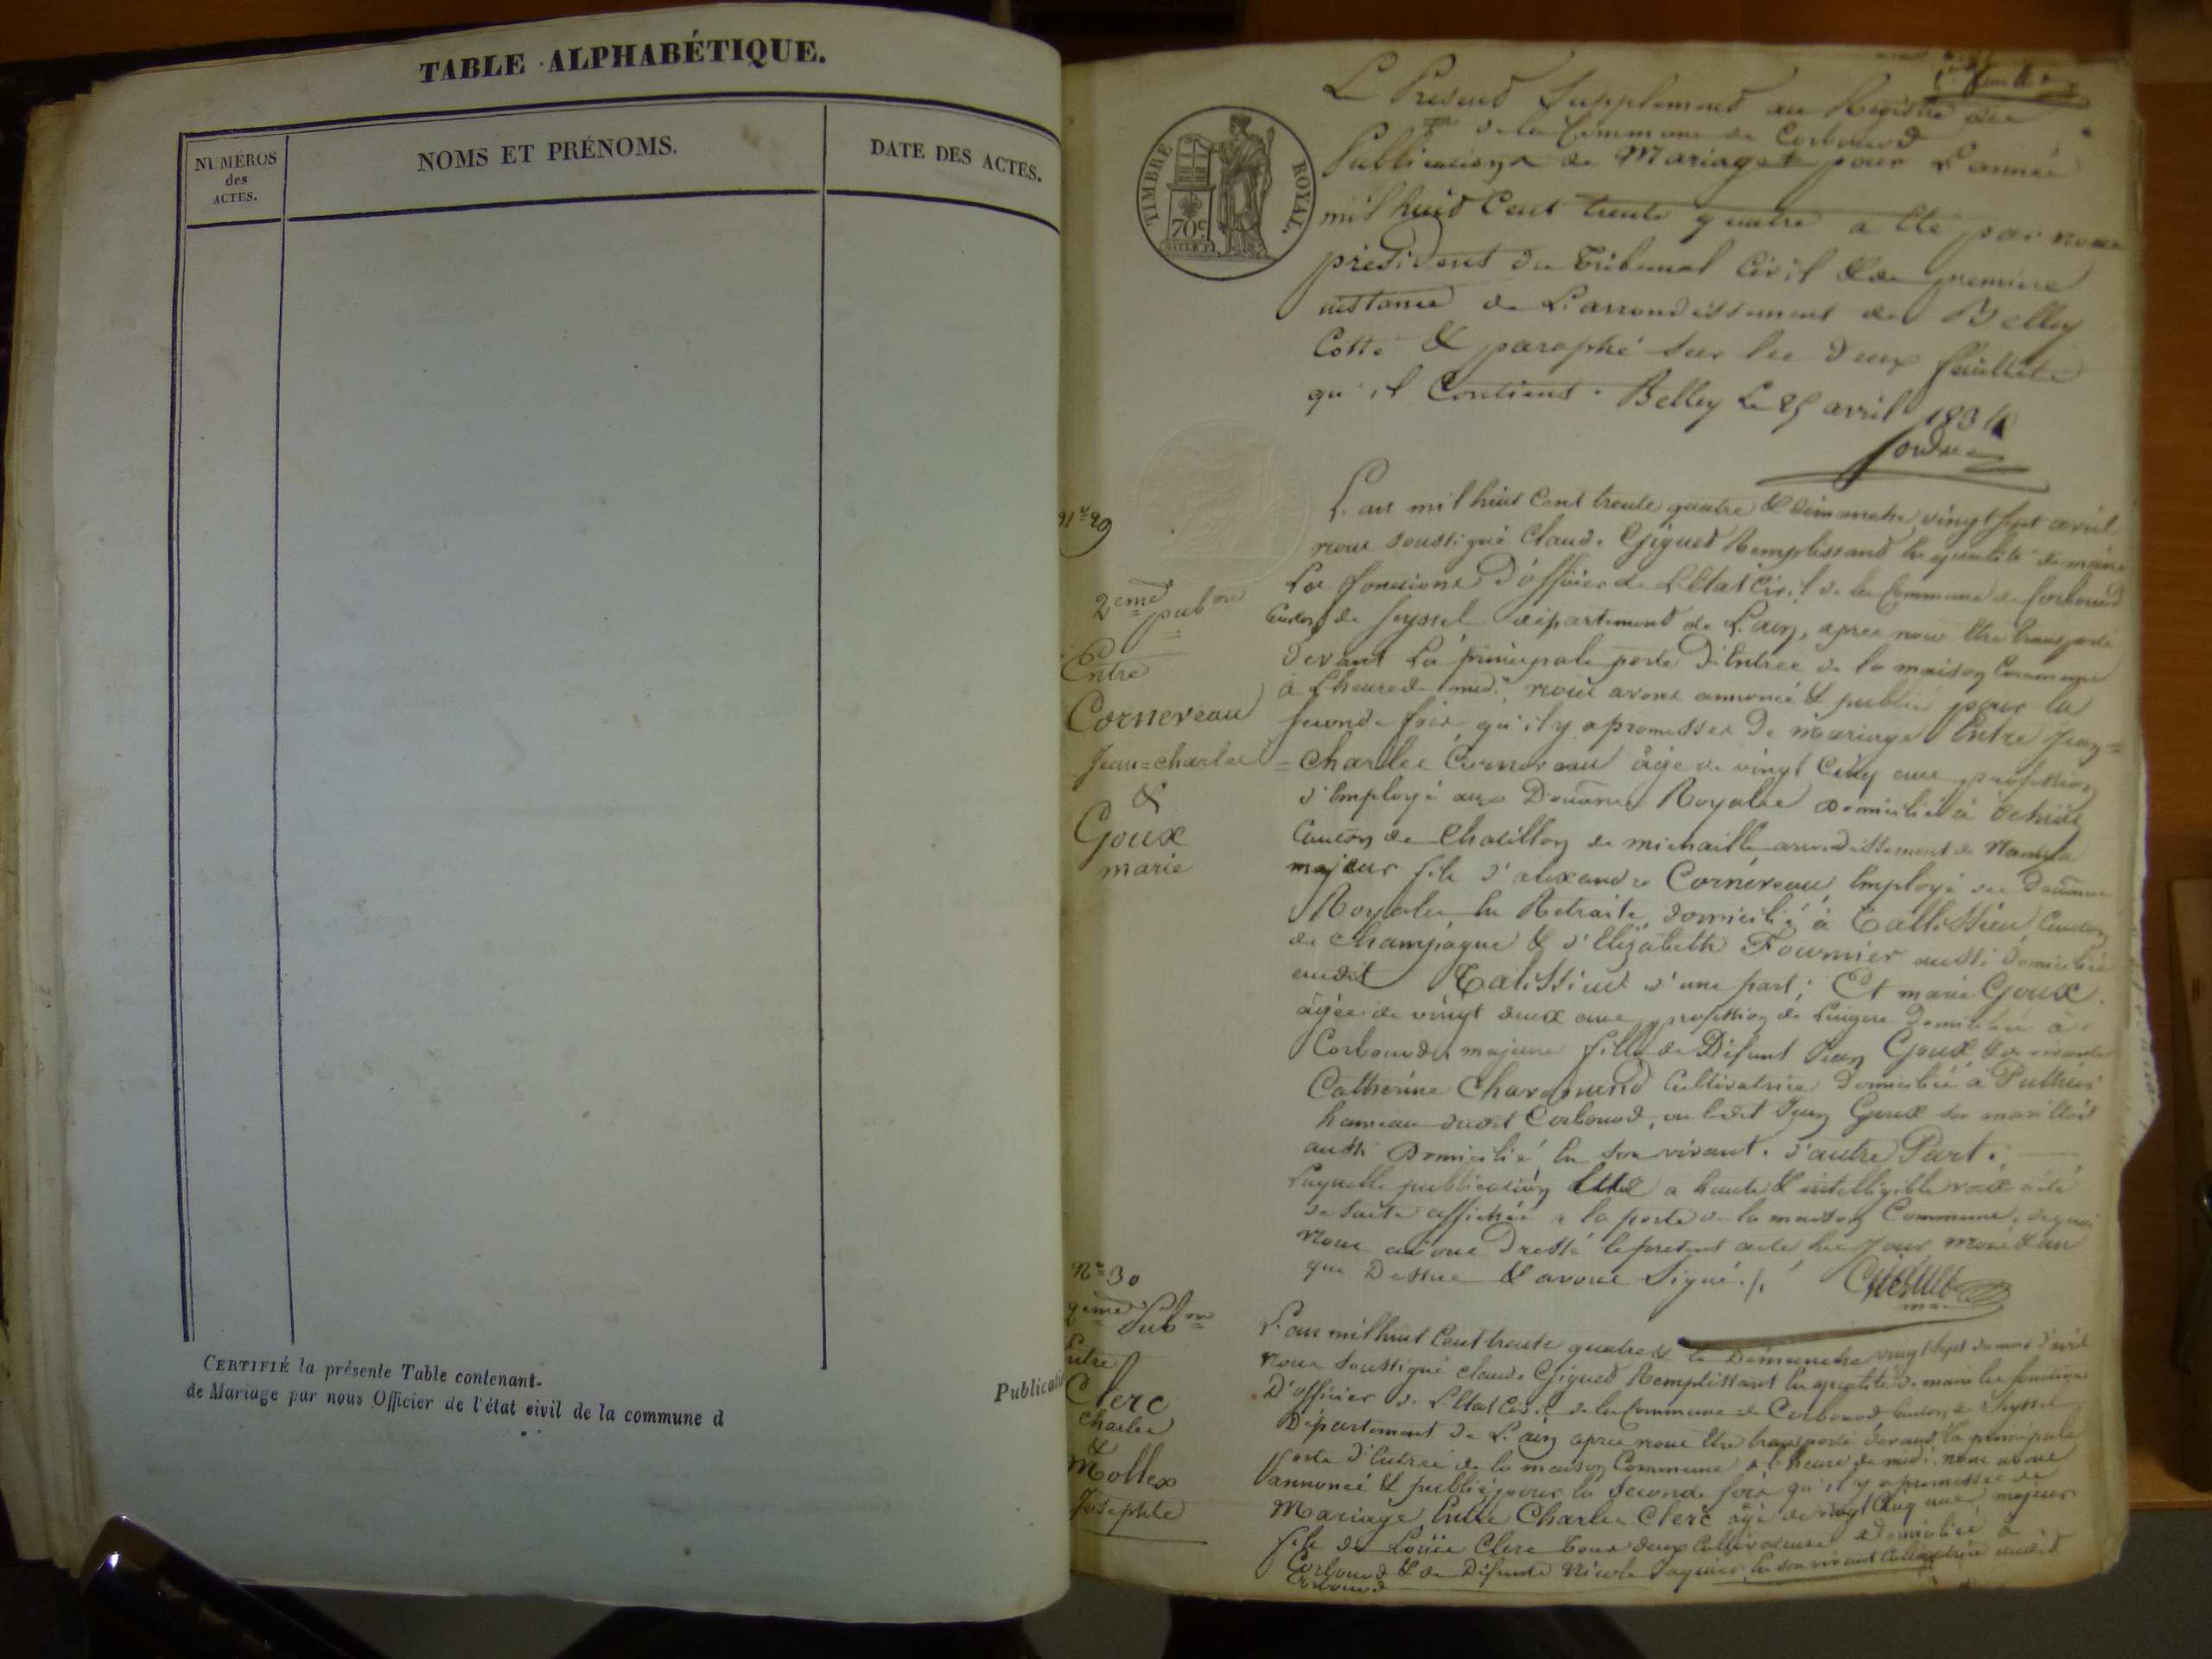 TABLE ALPHABÉTIQUE.
NUMÉROS
des
ACTES.
NOMS ET PRÉNOMS.
DATE DES ACTES.
CERTIFIÉ la présente Table contenant
de Mariage par nous Officier de l'état civil de la commune d
Publicati
TIMBRE ROYAL.
70c
Le Present Supplement au Registre des
de la Commune de Corbonod
Publications de Mariages pour L'année
mil huit Cent trente quatre a été par nous
président du Tribunal Civil & de premiere
instance de L'arrondissement de Belley
Cotté & paraphé sur les deux feuillets
qu'il Contient. Belley Le 25 avril 1834
N° 29
2eme pubon
Entre
Cornereau
Jean=charles
&
Goux
marie
L'an mil huit Cent trente quatre & dimanche vingt sept avril
nous soussigné Claude Giguet Remplissant en qualité de maire
Les fonctions D'officier de L'Etat Civil de la Commune de Corbonod
Canton de Seyssel département de L'ain, après nous être transporté
devant La principale porte D'Entrée de la maison Commune
à L'heure de midi, nous avons annoncé & publié pour la
seconde fois, qu'il y a promesses de mariage Entre Jean=
=Charles Cornereau âgé de vingt Cinq ans profession
d'Employé aux Douanes Royales Domicilié à
Canton de Chatillon de michaille arrondissement de Nantua
majeur fils d'alexandre Cornereau Employé des Douanes
Royales En Retraite, domicilié à Tallissieu Canton
de Champagne & d'Elizabeth Fournier aussi Domiciliée
audit Talissieu d'une part; Et marie Goux
âgée de vingt deux ans profession de Lingere Domiciliée à
Corbonod, majeure fille de Défunt Jean Goux & de vivante
Catherine Cultivatrice Domiciliée à Puthier
hameau dudit Corbonod, ou ledit Jean Goux son mari était
aussi Domicilié En son vivant. d'autre Part.
Laquelle publication a haute & intelligible voix a été
de suite affichée à la porte de la maison Commune, de quoi
nous avons Dressé le présent acte les Jour mois & an
que Dessus & avons signé./.
N° 30
2eme Pubon
Entre
Clerc
Charles
&
Mollex
Josephte
L'an mil huit Cent trente quatre & le Dimanche vingt sept du mois d'avril
nous soussigné Claude Giguet Remplissant En qualité de maire les fonctions
D'officier de L'Etat Civil de la Commune de Corbonod Canton de Seyssel
Département de L'ain après nous être transporté devant la principale
porte D'Entrée de la maison Commune à L'heure de midi. nous avons
annoncé & publié pour la seconde fois qu'il y a promesses de
Mariage Entre Charles Clerc âgé de vingt Cinq ans, majeur
fils de Louis Clerc Domicilié à
Corbonod & de Défunte Nicole En son vivant Cultivatrice audit
Corbonod